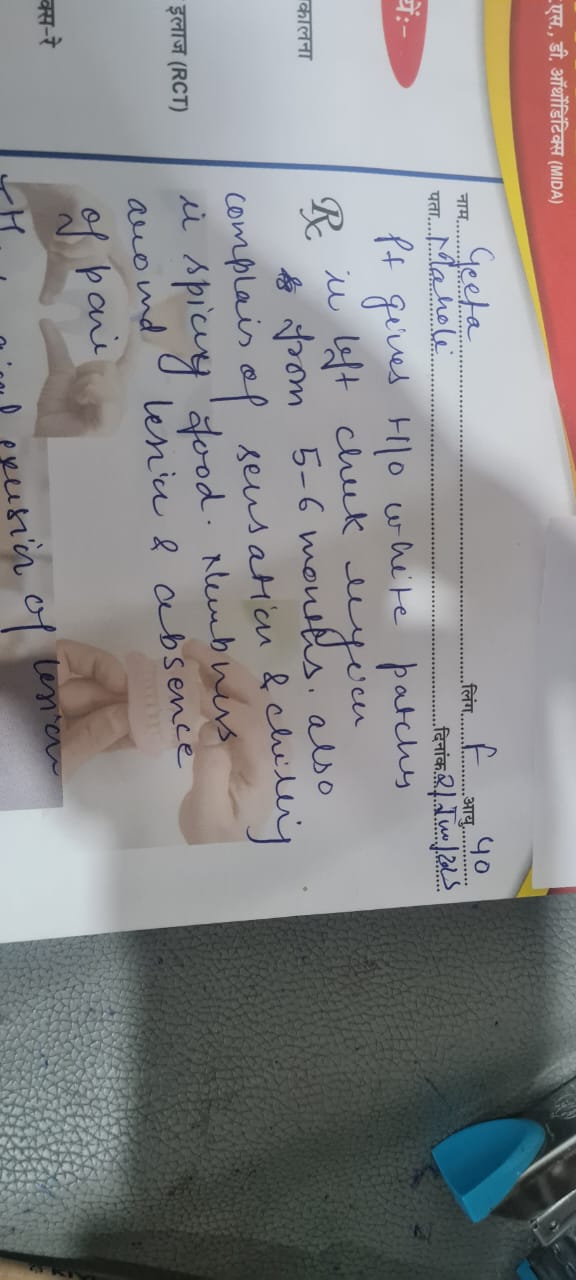 एस., डी. ऑर्थोडोंटिक्स (MIDA)
यें:-
कालना
इलाज (RCT)
क्स-रे
नाम.... Geeta ....लिंग.... F ....आयु.... 40
पता.... Maholi ....दिनांक
Pt gives H/o white patches
Rx in left cheek region
from 5-6 months. also
complais of sensation & chilling
in spicing food. Numbness
around lesion & absence
of pain
excusion of lesion